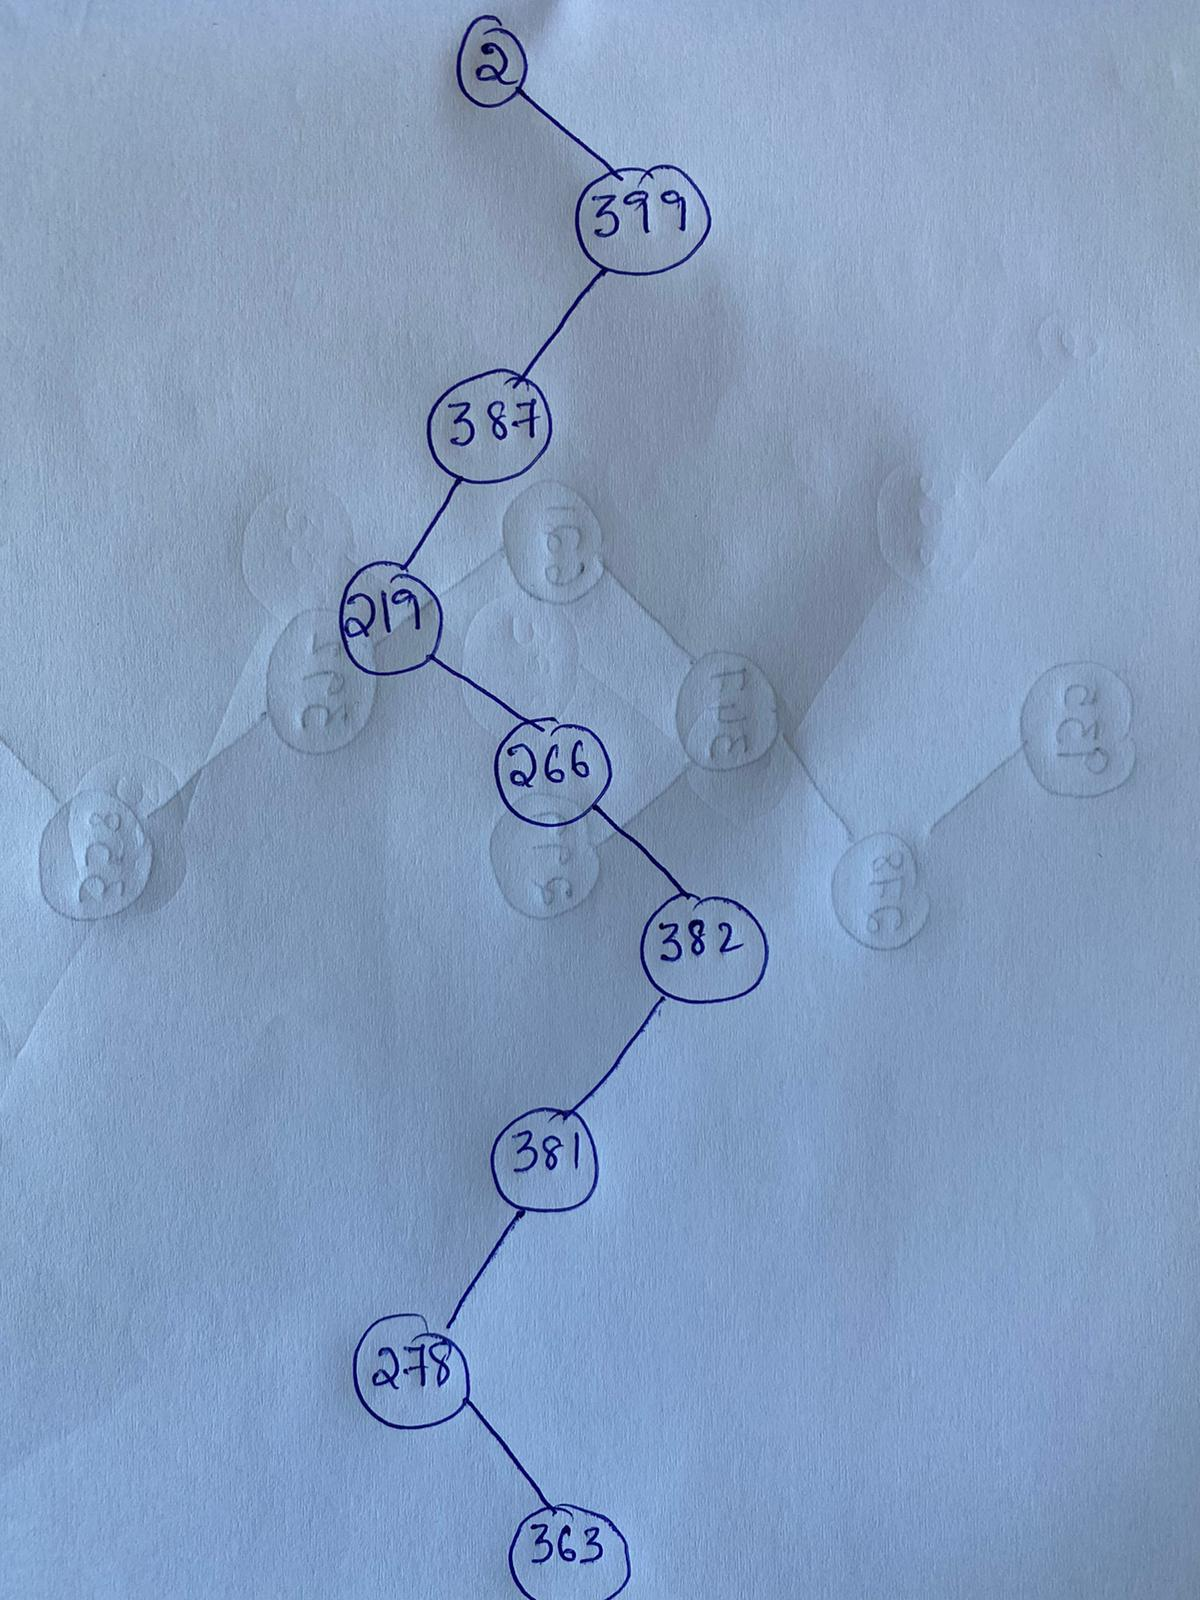 2
399
387
219
266
382
381
278
363